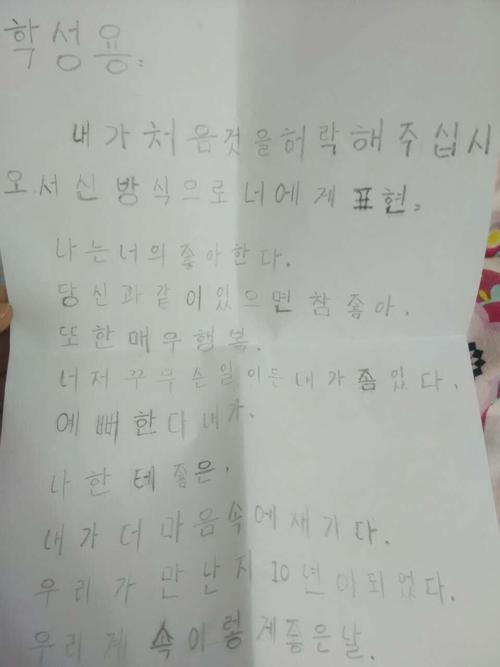 학성용:
내가처음것을허락해주십시
오서신방식으로너에게표현:
나는너의좋아한다.
당신과같이있으면참좋아.
또한매우행복.
너저꾸무슨일이든내가좀있다.
예뻐한다내가.
나한테좋은,
내가더마음속에재기다.
우리가만난지10년이되었다.
우리계속이렇게좋은날.